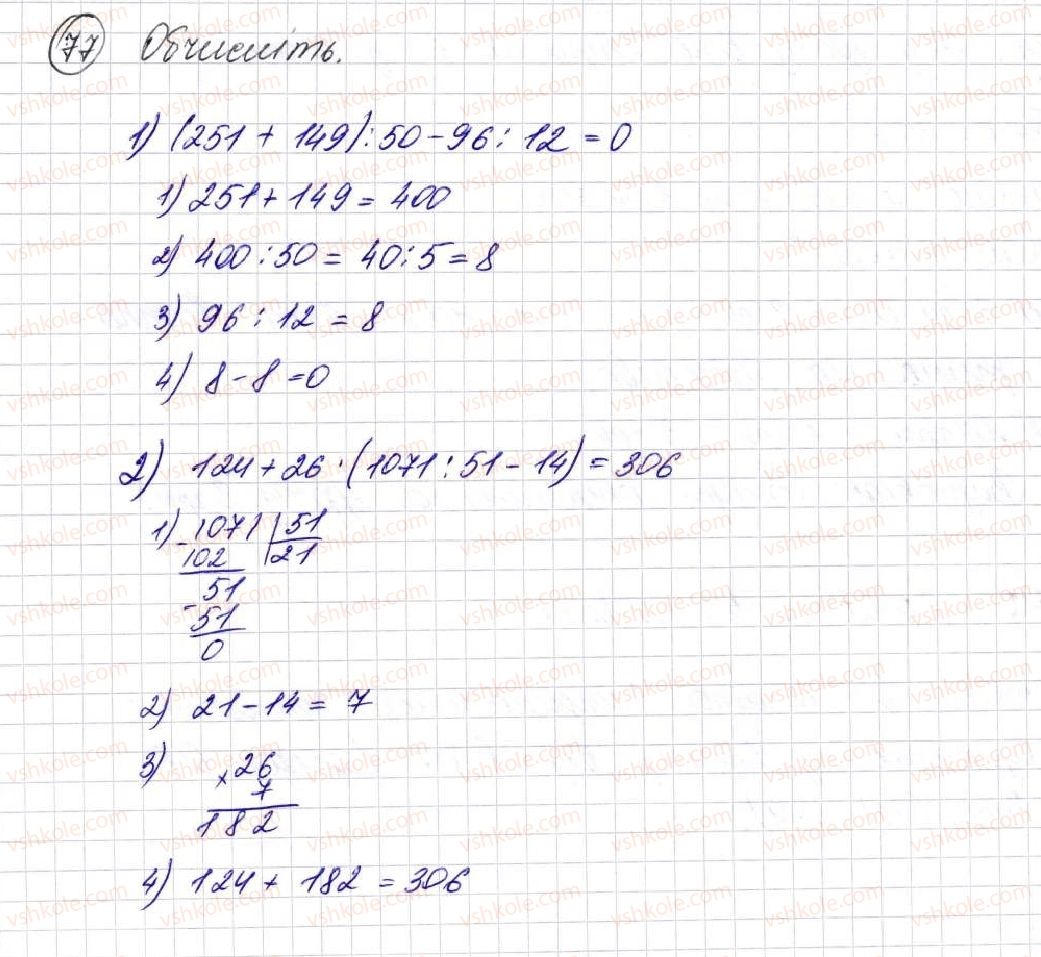 77 Обчисліть.
1) (251 + 149) : 50 - 96 : 12 = 0
1) 251 + 149 = 400
2) 400 : 50 = 40 : 5 = 8
3) 96 : 12 = 8
4) 8 - 8 = 0
2) 124 + 26 · (1071 : 51 - 14) = 306
1) - 1071 | 51
102 | 21
- 51
51
0
2) 21 - 14 = 7
3) × 26
7
182
4) 124 + 182 = 306
vshkole.com